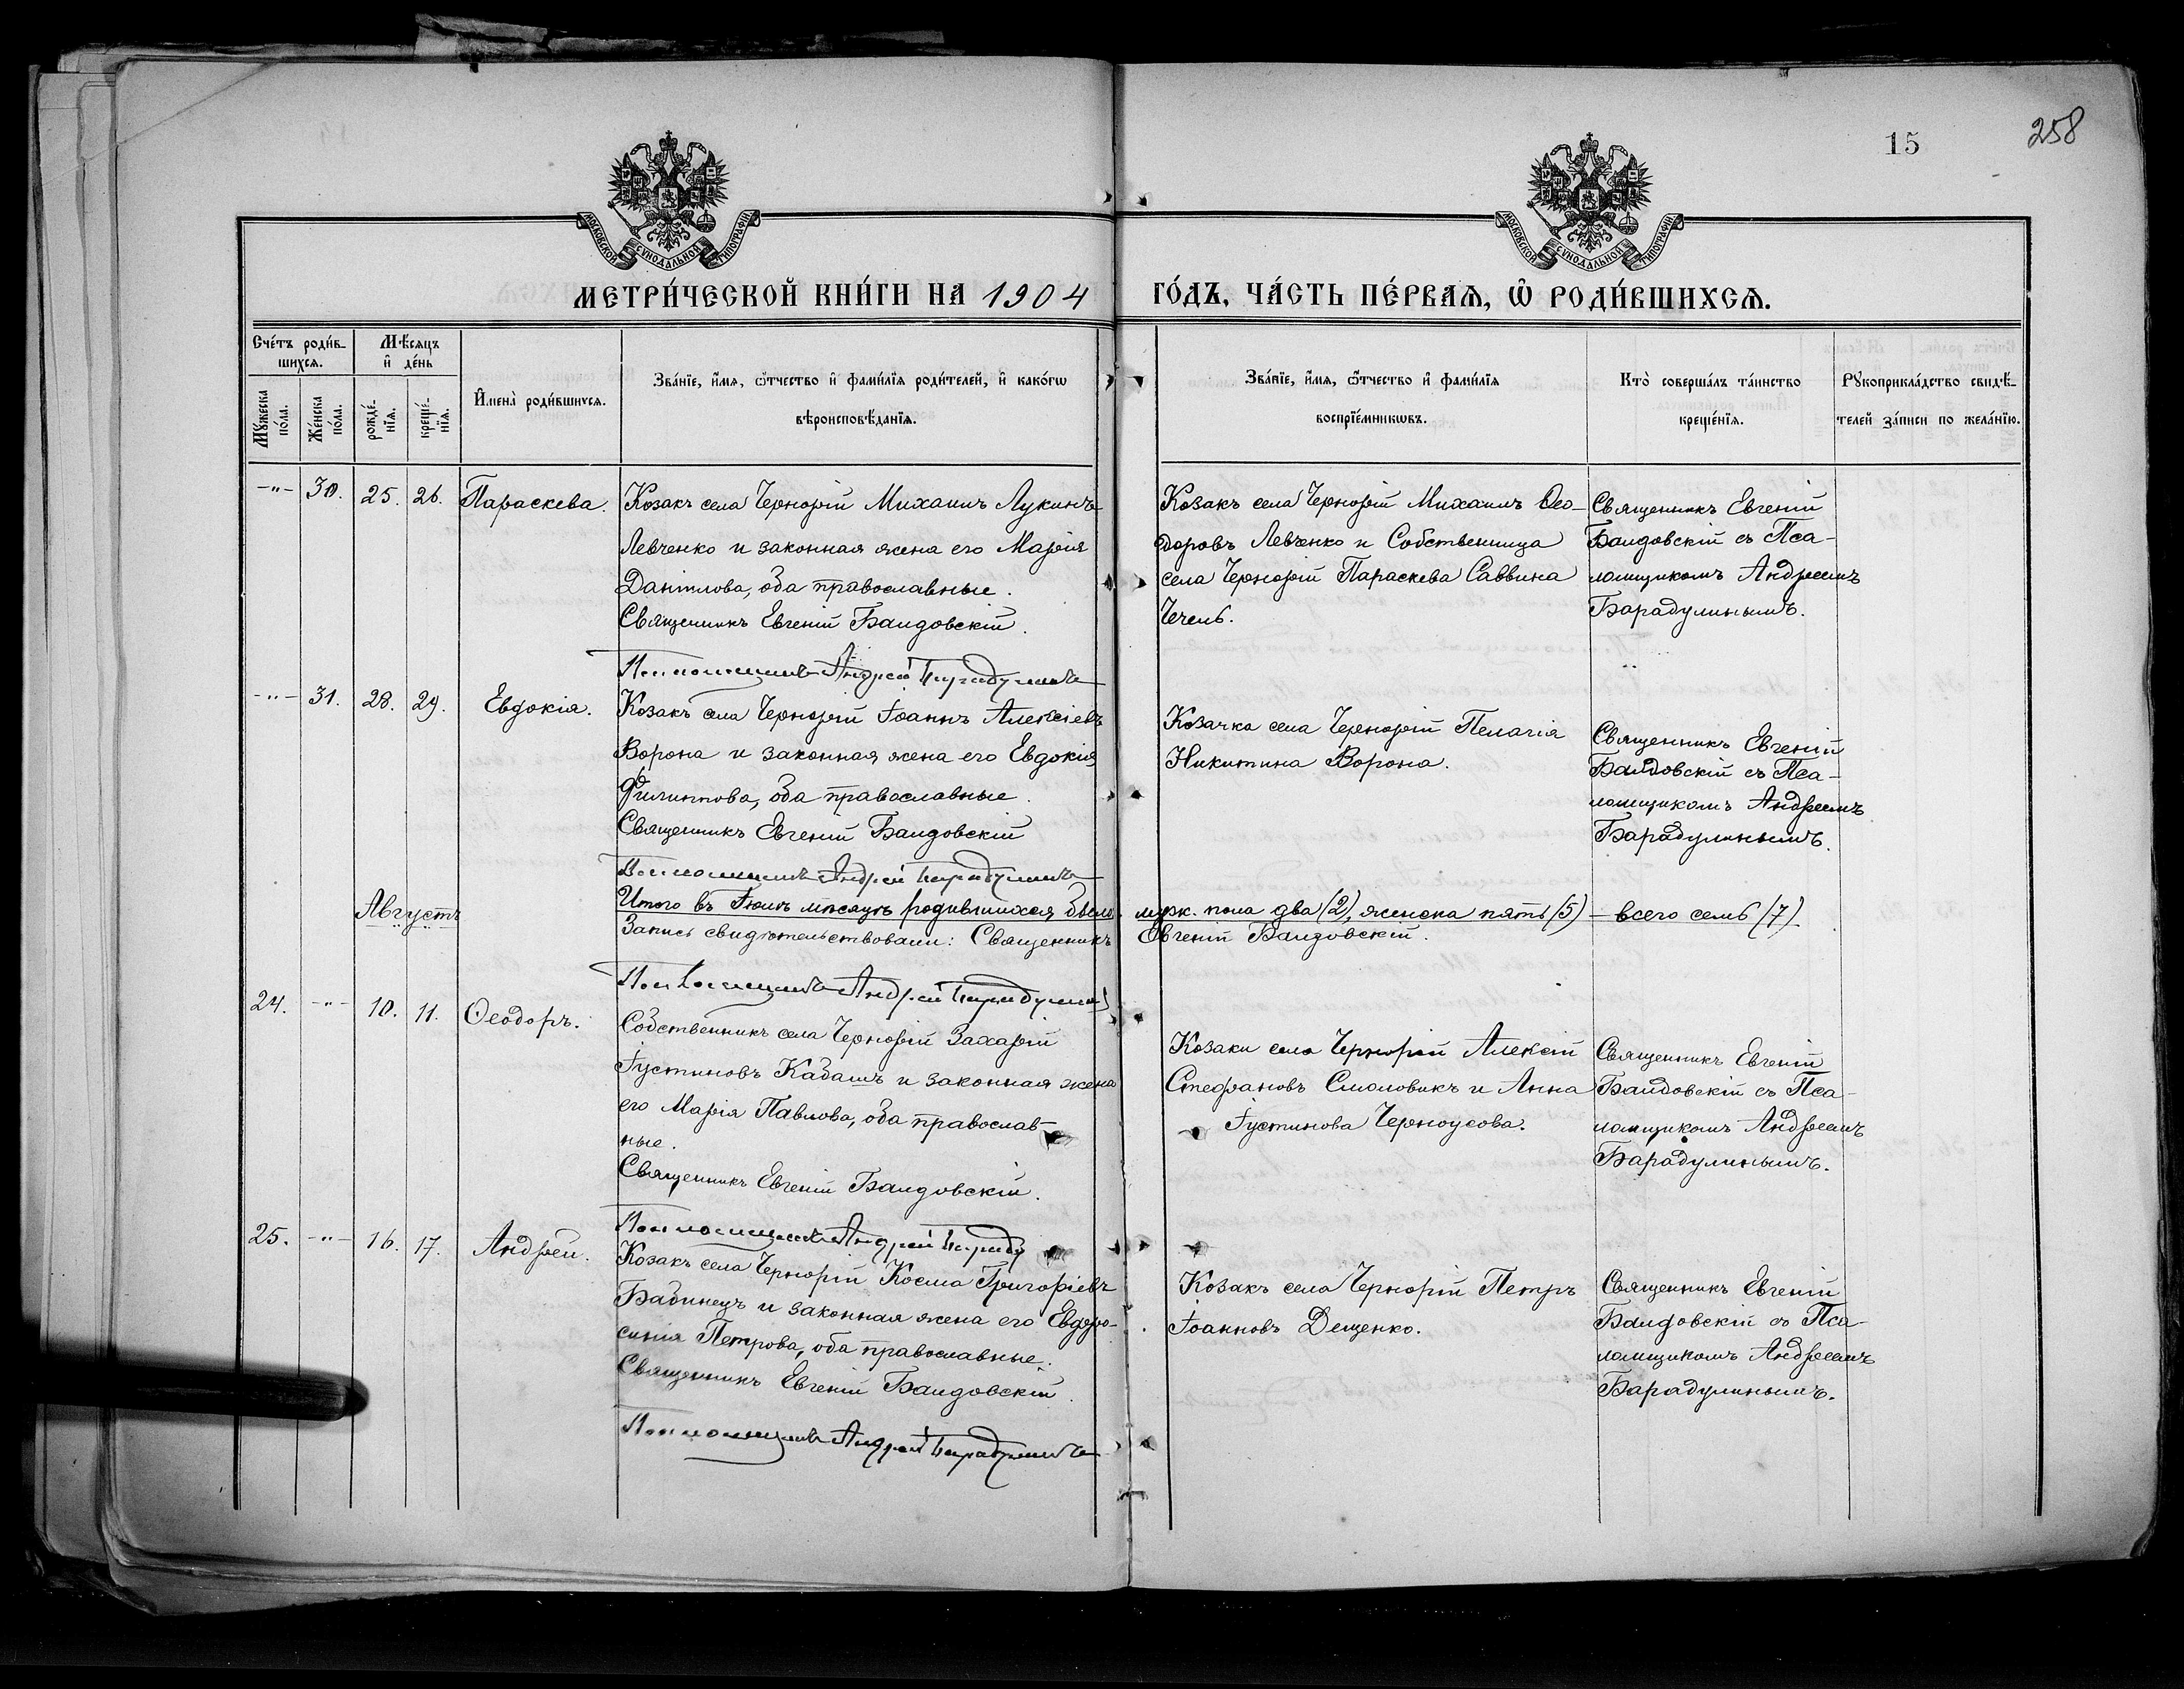 258
15
МОСКОВСКОЙ СѴНОДАЛЬНОЙ ТИПОГРАФІИ
МОСКОВСКОЙ СѴНОДАЛЬНОЙ ТИПОГРАФІИ
МЕТРИ́ЧЕСКОЙ КНИ́ГИ НА 1904 ГО́ДЪ, ЧА́СТЬ ПЕ́РВАѦ, Ѽ РОДИ́ВШИХСѦ.
Сче́тъ роди́в-
шихсѧ.
Мꙋжеска по́ла.
Же́нска по́ла.
Мѣ́сѧцъ
и҆ де́нь
рожде́-
нїѧ.
креще́-
нїѧ.
И҆мена̀ роди́вшихсѧ.
Зва́нїе, и҆́мѧ, ѻ҆́тчество и҆ фами́лїѧ роди́телей, и҆ како́гѡ
вѣроисповѣ́данїѧ.
Зва́нїе, и҆́мѧ, ѻ҆́тчество и҆ фами́лїѧ
воспрїе́мникѡвъ.
Кто̀ соверша́лъ та́инство
креще́нїѧ.
Рꙋкоприкла́дство свидѣ́-
телей за́писи по жела́нїю.
-"- 30. 25. 26. Параскева.
Козакъ села Чернорій Михаилъ Лукинъ
Левченко и законная жена его Марія
Даніилова, оба православные.
Священникъ Евгеній Баидовскій.
Псаломщикъ Андрей Барадулинъ
Козакъ села Чернорій Михаилъ Ѳео-
доровъ Левченко и Собственница
села Чернорій Параскева Саввина
Чечель.
Священникъ Евгеній
Баидовскій съ Пса-
ломщикомъ Андреемъ
Барадулинымъ.
-"- 31. 28. 29. Евдокія.
Козакъ села Чернорій Іоаннъ Алексіевъ
Ворона и законная жена его Евдокія
Филиппова, оба православные.
Священникъ Евгеній Баидовскій
Псаломщикъ Андрей Барадулинъ
Козачка села Чернорій Пелагія
Никитина Ворона.
Священникъ Евгеній
Баидовскій съ Пса-
ломщикомъ Андреемъ
Барадулинымъ.
Итого въ Іюлѣ мѣсяцѣ родившихся было муж. пола два (2), женска пять (5) - всего семь (7)
Августъ
Запись свидѣтельствовали: Священникъ Евгеній Баидовскій.
Псаломщикъ Андрей Барадулинъ
24. -"- 10. 11. Ѳеодоръ.
Собственникъ села Чернорій Захарій
Іустиновъ Кабашъ и законная жена
его Марія Павлова, оба православ-
ные.
Священникъ Евгеній Баидовскій.
Псаломщикъ Андрей Бараду
Козаки села Чернорій Алексій
Стефановъ Смоловикъ и Анна
Іустинова Черноусова.
Священникъ Евгеній
Баидовскій съ Пса-
ломщикомъ Андреемъ
Барадулинымъ.
25. -"- 16. 17. Андрей.
Козакъ села Чернорій Косма Григоріевъ
Бабинецъ и законная жена его Евфро-
синія Петрова, оба православные.
Священникъ Евгеній Баидовскій.
Псаломщикъ Андрей Барадулинъ
Козакъ села Чернорій Петръ
Іоанновъ Дещенко.
Священникъ Евгеній
Баидовскій съ Пса-
ломщикомъ Андреемъ
Барадулинымъ.